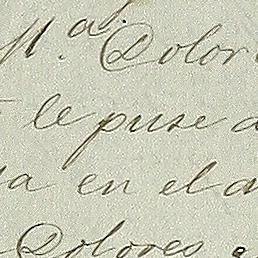 M.ª Dolor
le puse a
a en el a
Dolores